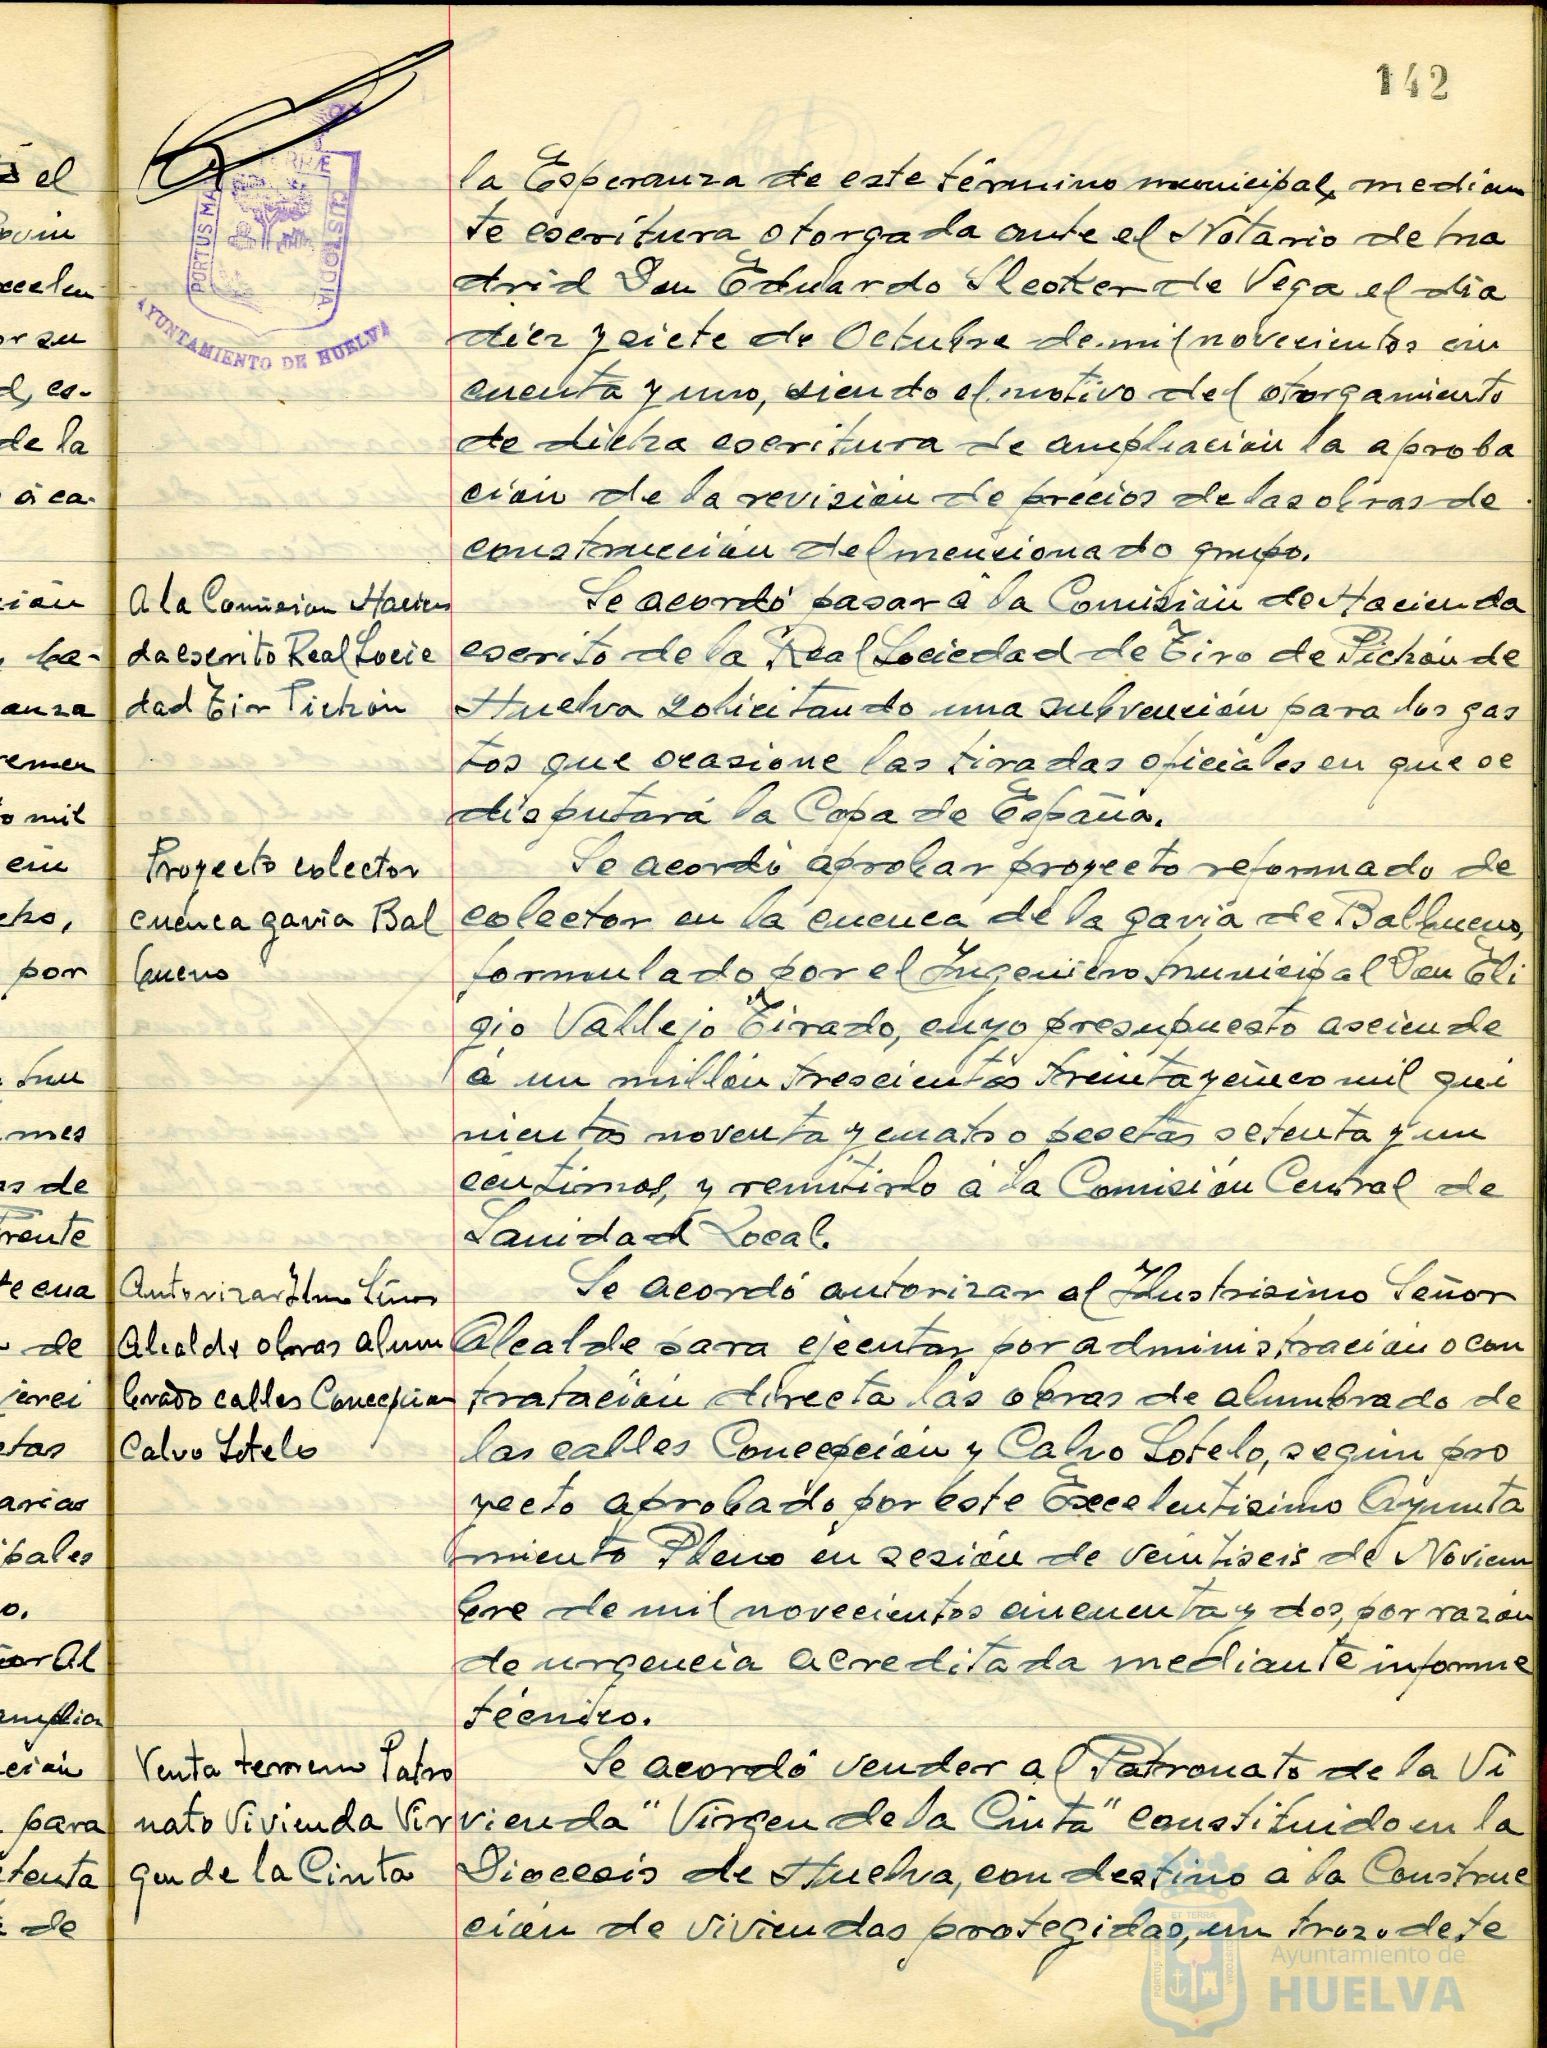 142
la Esperanza de este término municipal, median
te escritura otorgada ante el Notario de Ma
drid Don Eduardo de Vega el día
diez y siete de Octubre de mil novecientos cin
cuenta y uno, siendo el motivo del otorgamiento
de dicha escritura de ampliación la aproba
ción de la revisión de precios de las obras de
construcción del mencionado grupo.
A la Comision Hacien
da escrito Real Socie
dad Tiro Pichón
Se acordó pasar á la Comisión de Hacienda
escrito de la Real Sociedad de Tiro de Pichón de
Huelva solicitando una subvención para los gas
tos que ocasione las tiradas oficiales en que se
disputará la Copa de España.
Proyecto colector
cuenca gavia Bal
bueno
Se acordó aprobar proyecto reformado de
colector en la cuenca de la gavia de Balbueno,
formulado por el Ingeniero municipal Don Eli
gio Vallejo Tirado, cuyo presupuesto asciende
á un millón trescientas treinta y cinco mil qui
nientas noventa y cuatro pesetas setenta y un
céntimos, y remitirlo á la Comisión Central de
Sanidad Local.
Autorizar Ilmo Señor
Alcalde obras alum
brado calles Concepción
Calvo Sotelo
Se acordó autorizar al Ilustrisimo Señor
Alcalde para ejecutar por administración o con
tratación directa las obras de alumbrado de
las calles Concepción y Calvo Sotelo, según pro
yecto aprobado por este Excelentisimo Ayunta
miento Pleno en sesión de veintiseis de Noviem
bre de mil novecientos cincuenta y dos, por razón
de urgencia acreditada mediante informe
técnico.
Venta terreno Patro
nato Vivienda Vir
gen de la Cinta
Se acordó vender al Patronato de la Vi
vienda "Virgen de la Cinta" constituido en la
Diocesis de Huelva, con destino á la Construc
ción de viviendas protegidas, un trozo de te
PORTUS MA
TERRÆ
CUSTODIA
AYUNTAMIENTO DE HUELVA
el
or su
d, es-
de la
á ca-
ción
anza
o mil
cin
cho,
por
mes
as de
de
etas
arias
pales
o.
or Al
amplia
ción
para
de
Ayuntamiento de
HUELVA